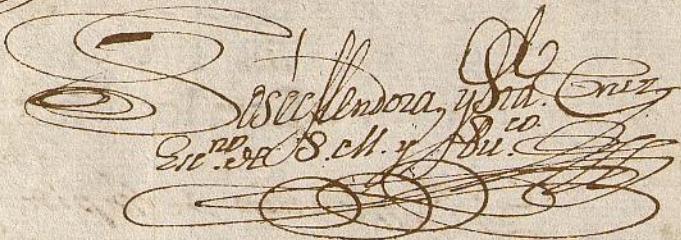 Jose Mendoza, y Sta. Cruz
Esc.no de S. M. y Pu.co